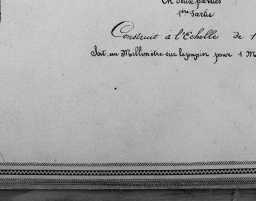 En deux parties
1ère Partie
Construit à l'Echelle de 1
Soit un Millimètre sur le papier pour 1 M